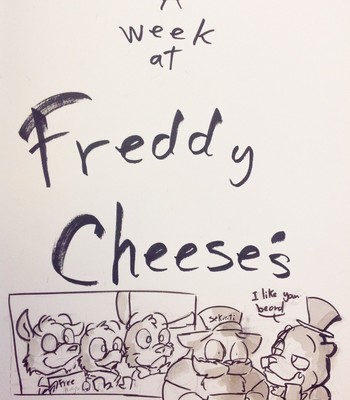 A
week
at
Freddy
Cheese's
I like your
beard
Sekriti
Free